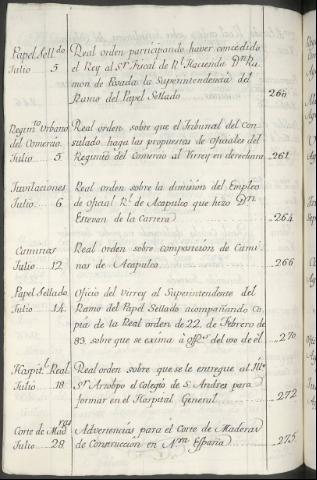 Papel Sell.do Real orden participando haver concedido
Julio 5 el Rey al S.r Fiscal de R.l Hacienda D.n Ra-
mon de Posada la Superintendencia del
Ramo del Papel Sellado 260
Regim.to Urbano Real orden sobre que el Tribunal del Con-
del Comercio. sulado haga las propuestas de oficiales del
Julio 5. Regimi.to del Comercio al Virrey en derechura 261.
Juvilaciones Real orden sobre la dimision del Empleo
Julio 6 de oficial R.l de Acapulco que hizo D.n
Estevan de la Carrera 264
Caminos Real orden sobre composicion de Cami-
Julio 12 nos de Acapulco 266
Papel Sellado Oficio del Virrey al Superintendente del
Julio 14. Ramo del Papel Sellado acompañando Co-
pia de la Real orden de 22 de Febrero de
83, sobre que se exima à off.s del uso de él 270
Hospit.l Real Real orden sobre que se le entregue al Ill.e
Julio 18 S.r Arzobpo el Colegio de S. Andres para
formar en el Hospital General 272
Corte de Mad.ras Advertencias para el Corte de Maderas
Julio 28 de Construccion en N.va España 275